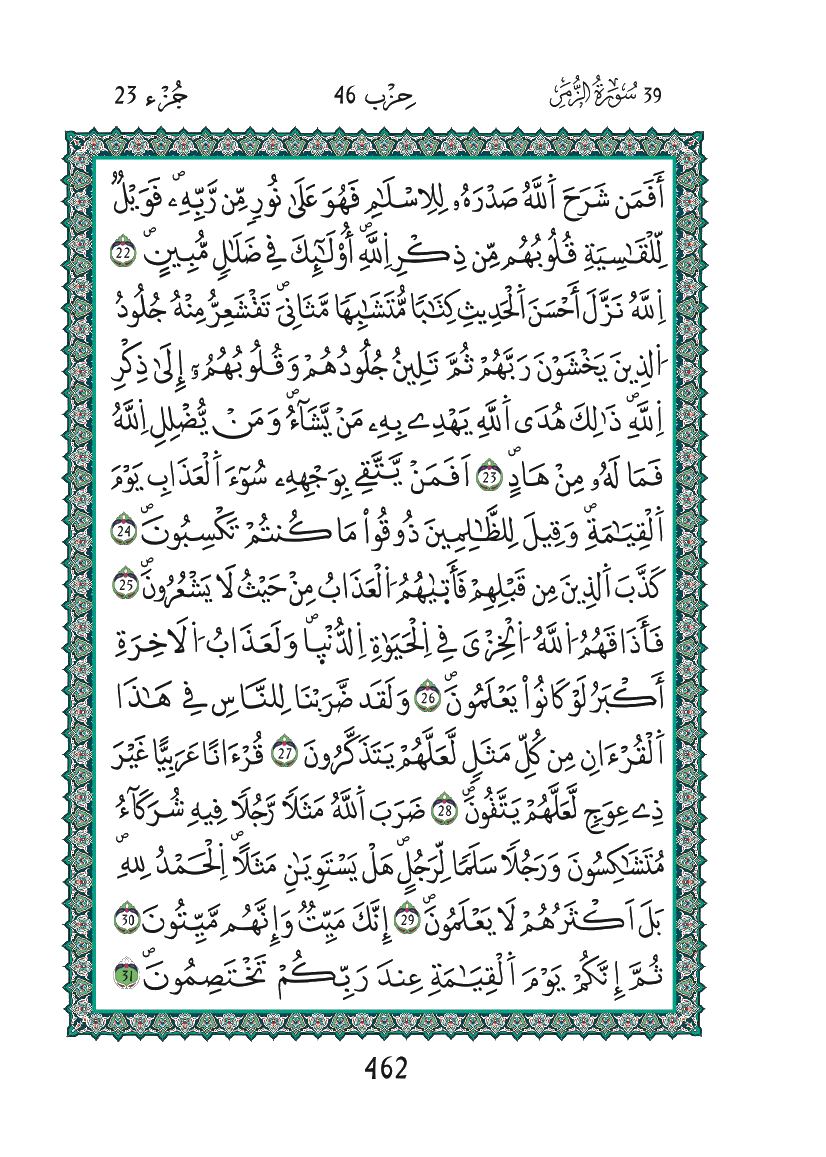 39 سُورَةُ الزُّمَر حِزْب 46 جُزْء 23
أَفَمَن شَرَحَ اَ۬للَّهُ صَدْرَهُۥ لِلِاسْلَٰمِ فَهُوَ عَلَىٰ نُورٖ مِّن رَّبِّهِۦۖ فَوَيْلٞ
لِّلْقَٰسِيَةِ قُلُوبُهُم مِّن ذِكْرِ اِ۬للَّهِۖ أُوْلَٰٓئِكَ فِے ضَلَٰلٖ مُّبِينٍۖ 22
اِ۬للَّهُ نَزَّلَ أَحْسَنَ اَ۬لْحَدِيثِ كِتَٰباٗ مُّتَشَٰبِهاٗ مَّثَانِيَۖ تَقْشَعِرُّ مِنْهُ جُلُودُ
اُ۬لذِينَ يَخْشَوْنَ رَبَّهُمْ ثُمَّ تَلِينُ جُلُودُهُمْ وَقُلُوبُهُمُۥٓ إِلَىٰ ذِكْرِ
اِ۬للَّهِۖ ذَٰلِكَ هُدَى اَ۬للَّهِ يَهْدِے بِهِۦ مَنْ يَّشَآءُۖ وَمَنْ يُّضْلِلِ اِ۬للَّهُ
فَمَا لَهُۥ مِنْ هَادٍۖ 23 اَفَمَنْ يَّتَّقِے بِوَجْهِهِۦ سُوٓءَ اَ۬لْعَذَابِ يَوْمَ
اَ۬لْقِيَٰمَةِۖ وَقِيلَ لِلظَّٰلِمِينَ ذُوقُواْ مَا كُنتُمْ تَكْسِبُونَۖ 24
كَذَّبَ اَ۬لذِينَ مِن قَبْلِهِمْ فَأَت۪ىٰهُمُ اُ۬لْعَذَابُ مِنْ حَيْثُ لَا يَشْعُرُونَۖ 25
فَأَذَاقَهُمُ اُ۬للَّهُ اُ۬لْخِزْيَ فِے اِ۬لْحَيَوٰةِ اِ۬لدُّنْي۪اۖ وَلَعَذَابُ اُ۬لَاخِرَةِ
أَكْبَرُ لَوْ كَانُواْ يَعْلَمُونَۖ 26 وَلَقَد ضَّرَبْنَا لِلنَّاسِ فِے هَٰذَا
اَ۬لْقُرْءَانِ مِن كُلِّ مَثَلٖ لَّعَلَّهُمْ يَتَذَكَّرُونَ 27 قُرْءَاناً عَرَبِيّاً غَيْرَ
ذِے عِوَجٖ لَّعَلَّهُمْ يَتَّقُونَۖ 28 ضَرَبَ اَ۬للَّهُ مَثَلاٗ رَّجُلاٗ فِيهِ شُرَكَآءُ
مُتَشَٰكِسُونَ وَرَجُلاٗ سَلَماٗ لِّرَجُلٍۖ هَلْ يَسْتَوِيَٰنِ مَثَلاًۖ اِ۬لْحَمْدُ لِلهِۖ
بَلَ اَكْثَرُهُمْ لَا يَعْلَمُونَۖ 29 إِنَّكَ مَيِّتٞ وَإِنَّهُم مَّيِّتُونَ 30
ثُمَّ إِنَّكُمْ يَوْمَ اَ۬لْقِيَٰمَةِ عِندَ رَبِّكُمْ تَخْتَصِمُونَۖ 31
462